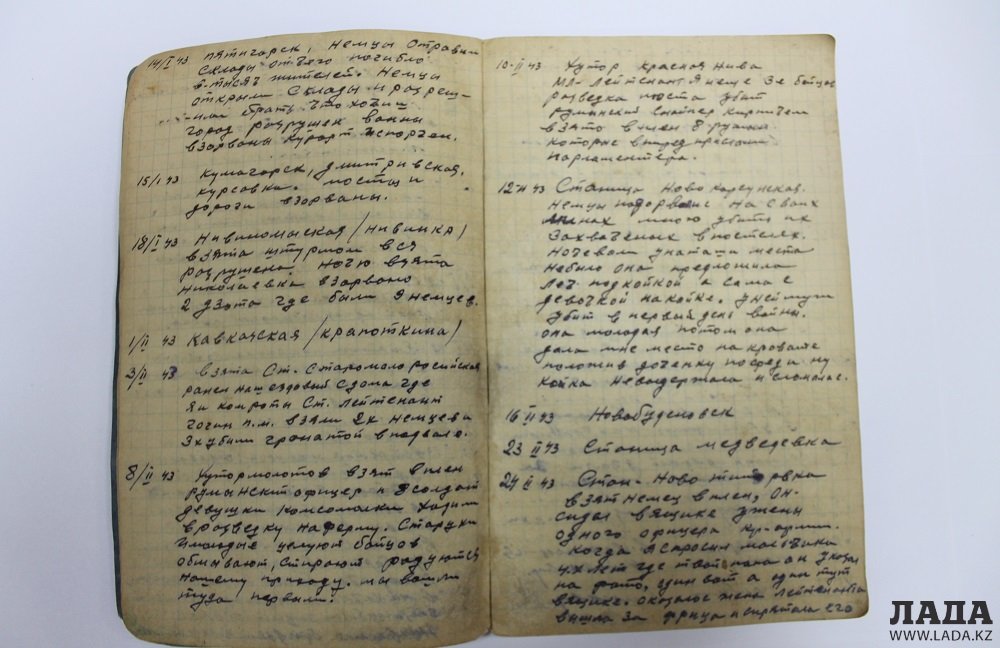 14/I 43 Пятигорск, Немцы отравили
склады отчего погибло
6-тысяч жителей. Немцы
открыли склады и разреш-
или брать что хотиш
город разрушен ванны
взорваны курорт испорчен.
15/I 43 Кумагорск, Дмитривская,
Курсовка. мосты и
дороги взорваны.
18/I 43 Нивиномыская (Нивинка)
взята штурмом вся
разрушена. Ночю взята
Николаевка взорвано
2 дзота где были 9 немцев.
1/II 43 Кавказская (Крапоткина)
3/II 43 взята Ст. Старомало российская
ранен наш ездовый с дома где
я и комроты Ст. лейтенант
п.м. взяли 2х немцев и
3х убили гранатой в подвале.
8/II 43 Хутор молотов взят в плен
румынский офицер и 8 солдат
девушки комсомолки ходили
в розведку на ферму. Старухи
и молодые целуют бойцов
обмывают, стирают радуются
нашему приходу. мы вошли
туда первыми.
10-II 43 Хутор Красная Нива
Мл-лейтенант Я и еще 3е бойцов
розведка поста убит
румынский снайпер кирпичем
взято в плен 8 румын
которые вперед прислали
парламентера.
12 II 43 Станица Ново Корсунская.
Немцы подорвались на своих
минах мною убиты их
захваченых в постелях.
Ночевали у наташи места
небыло она предложила
леч под койкой а сама с
девочкой на койке. у ней муж
убит в первый день войны.
она молодая потом она
дала мне место на кровате
положив доченку посреди ну
койка невыдержала и сломалас.
16 II 43 Новобуденовск
23 II 43 Станица медведевка
24 II 43 Стан-Ново титоровка
взят немец в плен, Он-
сидел в ящике у жены
одного офицера кр-армии.
когда я спросил мальчика
4х лет где твой папа он указал
на фото, один вот а один тут
в ящике. Оказалос жена лейтенанта
вышла за фрица и спрятала его
ЛАДА
WWW.LADA.KZ